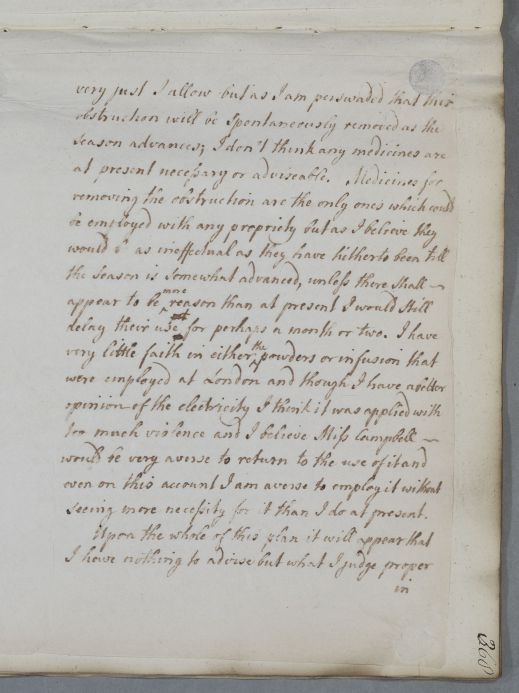 very just I allow but as I am perswaded that this
obstruction will be Spontaneously removed as the
season advances, I don't think any medicines are
at present necessary or adviseable. Medicines for
removing the obstruction are the only ones which could
be employed with any propriety but as I believe they
would b as ineffectual as they have hitherto been till
the season is somewhat advanced, unless there shall ~
appear to be more reason than at present I would still
delay their use for perhaps a month or two. I have
very little faith in either the powders or infusion that
were employed at London and though I have a better
opinion of the electricity I think it was applied with
too much violence and I believe Miss Campbell ~
would be very averse to return to the use of it and
even on this account I am averse to employ it without
seeing more necessity for it than I do at present.
Upon the whole of this plan it will appear that
I have nothing to advise but what I judge proper
in
368